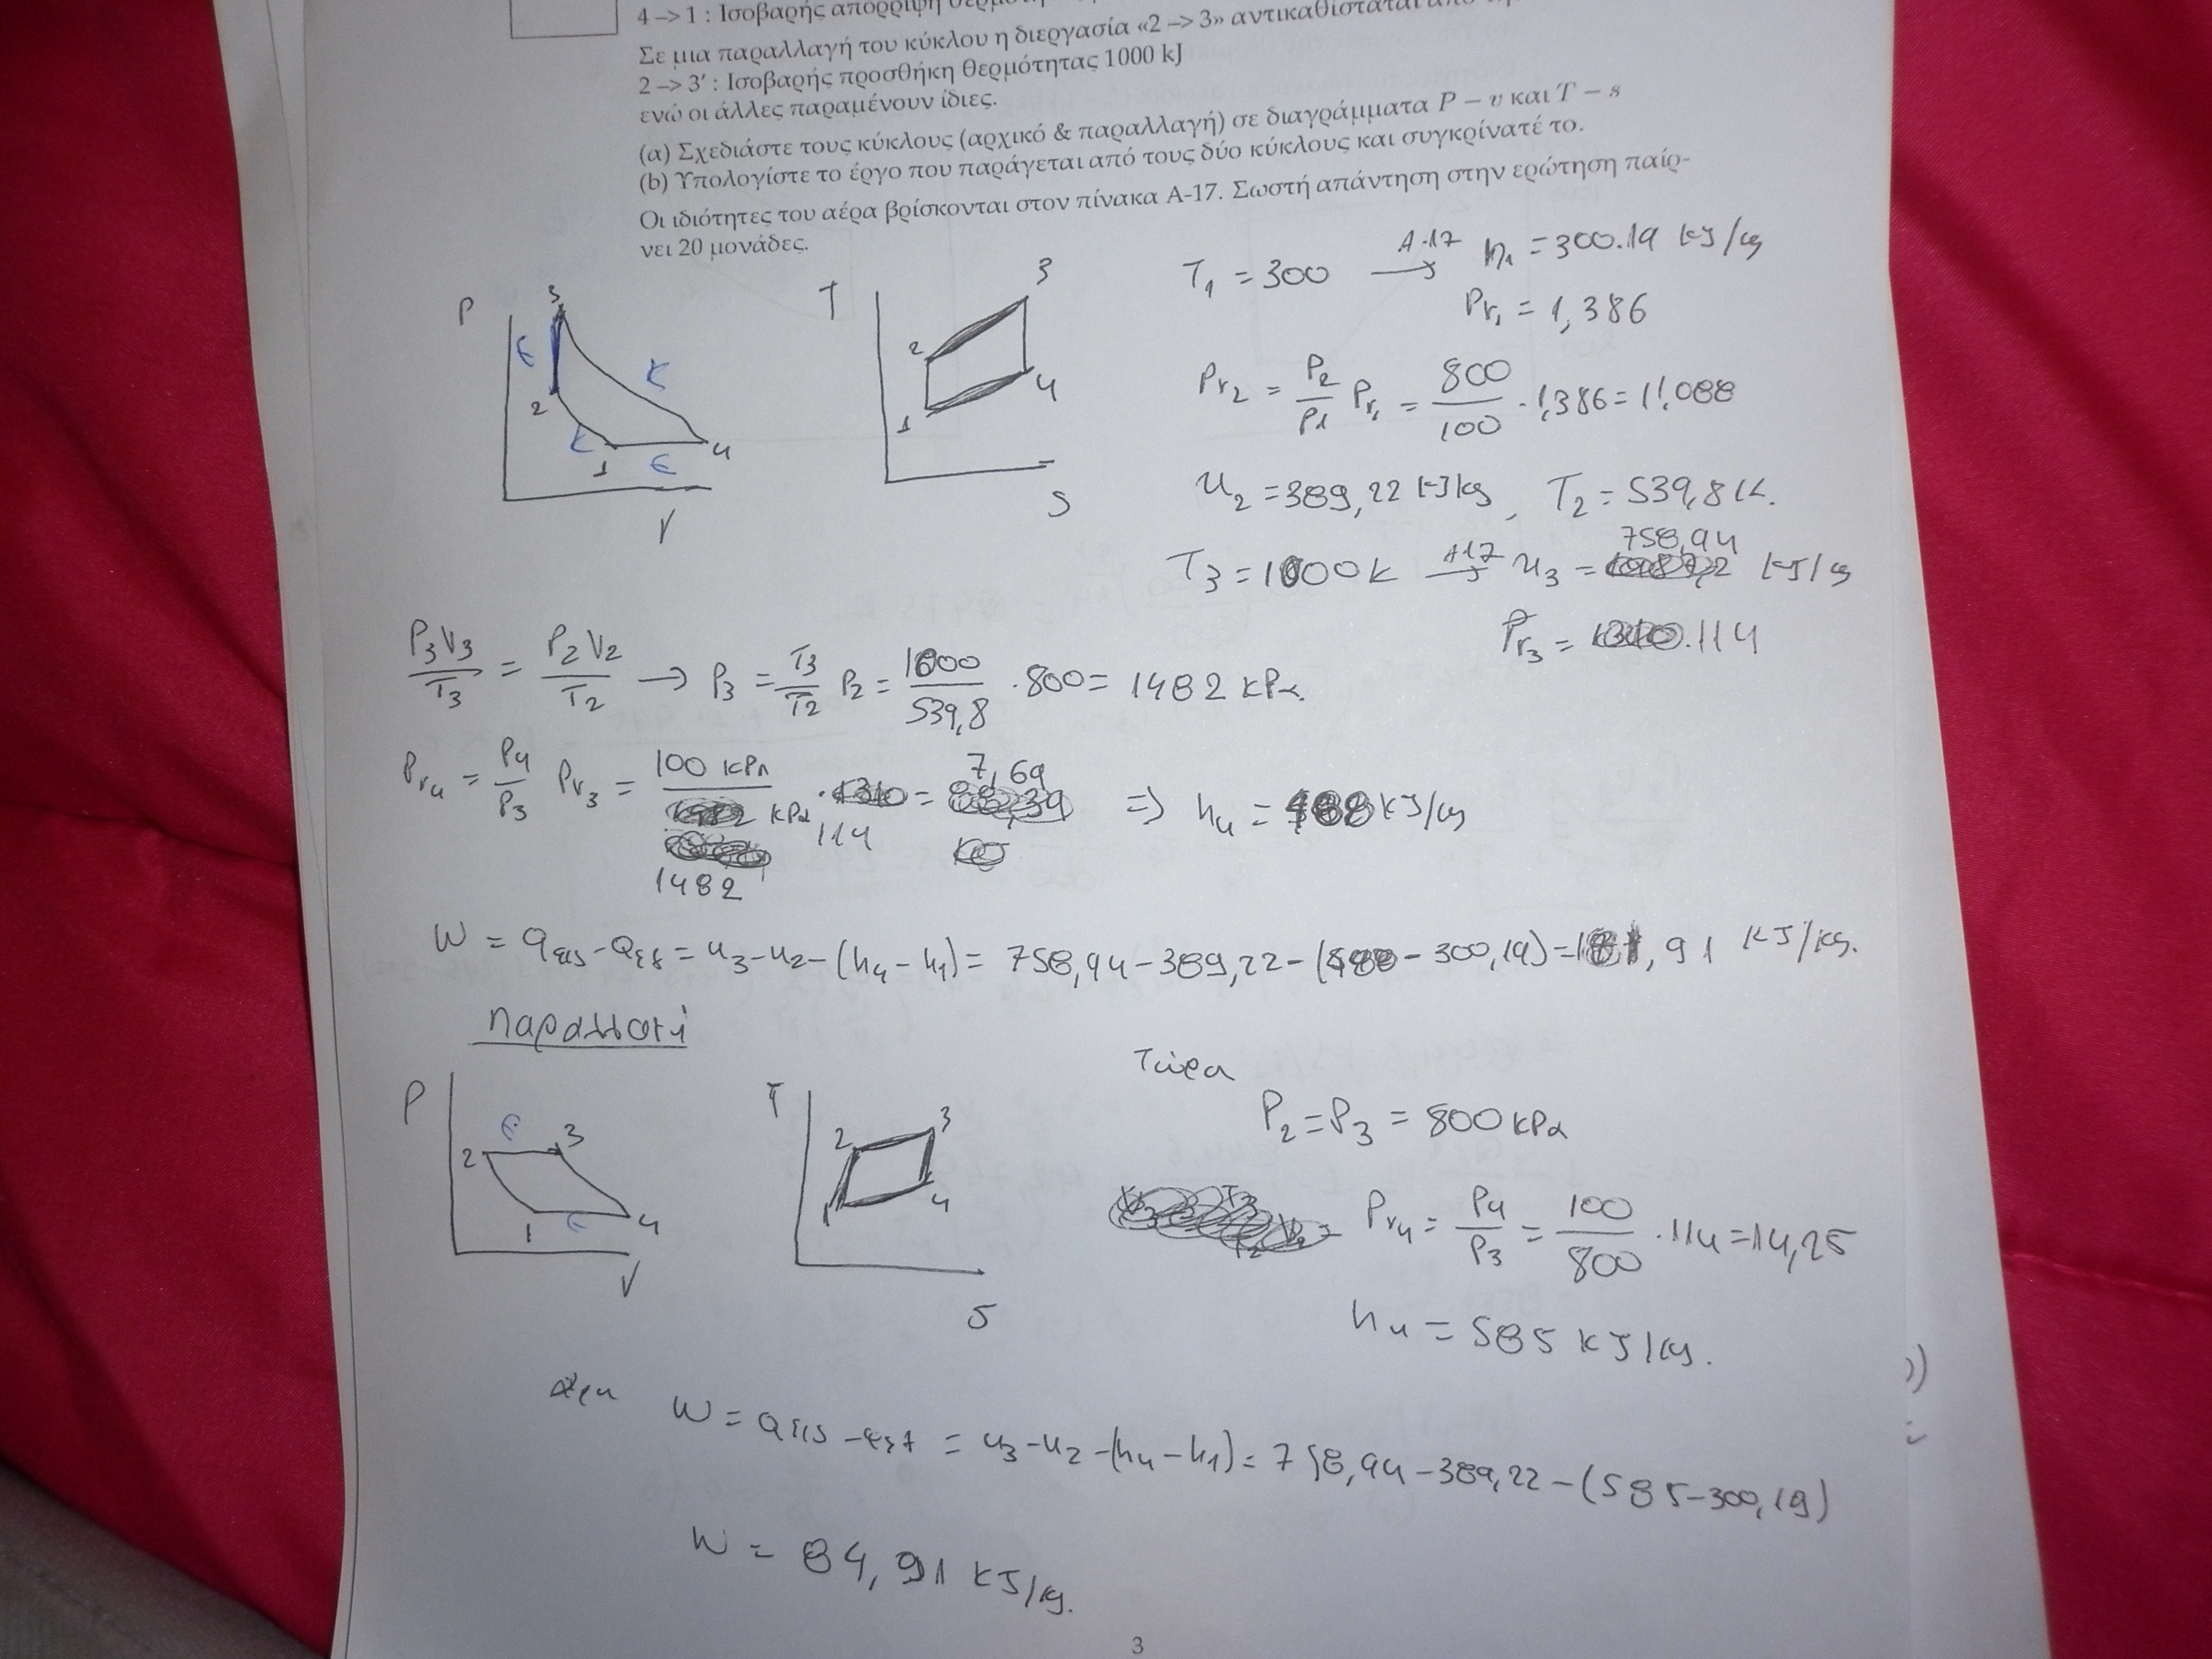 4 –> 1 : Ισοβαρής απόρριψη
Σε μια παραλλαγή του κύκλου η διεργασία «2 –> 3» αντικαθίσταται από
2 –> 3′ : Ισοβαρής προσθήκη θερμότητας 1000 kJ
ενώ οι άλλες παραμένουν ίδιες.
(α) Σχεδιάστε τους κύκλους (αρχικό & παραλλαγή) σε διαγράμματα P – v και T – s
(b) Υπολογίστε το έργο που παράγεται από τους δύο κύκλους και συγκρίνατέ το.
Οι ιδιότητες του αέρα βρίσκονται στον πίνακα Α-17. Σωστή απάντηση στην ερώτηση παίρ-
νει 20 μονάδες.
P 3 2 1 4 V
T 3 2 4 1 S
T1 = 300 A-17 → h1 = 300.19 kJ/kg
Pr1 = 1,386
Pr2 = P2/P1 Pr1 = 800/100 · 1,386 = 11,088
u2 = 389,22 kJ/kg , T2 = 539,8 K.
T3 = 1000 K A17 → u3 = 758,94 kJ/kg
Pr3 = 114
P3V3/T3 = P2V2/T2 → P3 = T3/T2 P2 = 1000/539,8 · 800 = 1482 kPa.
Pr4 = P4/P3 Pr3 = 100 kPa/1482 kPa · 114 = 7,69 ⇒ h4 = 488 kJ/kg
W = qεις - qεξ = u3 - u2 - (h4 - h1) = 758,94 - 389,22 - (488 - 300,19) = 181,91 kJ/kg.
παραλλαγή
P 2 3 1 4 V
T 2 3 1 4 S
Τώρα
P2 = P3 = 800 kPa
Pr4 = P4/P3 = 100/800 · 114 = 14,25
h4 = 585 kJ/kg.
άρα W = qεις - qεξ = u3 - u2 - (h4 - h1) = 758,94 - 389,22 - (585 - 300,19)
W = 84,91 kJ/kg.
3